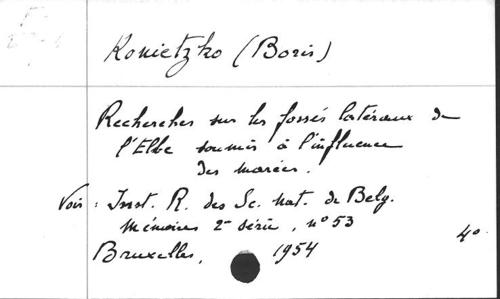 Konietzko (Boris)
Recherches sur les fossés latéraux de
l'Elbe soumis à l'influence
des marées.
Voir : Inst. R. des Sc. nat. de Belg.
Mémoires 2e série, n° 53
Bruxelles, 1954 4°